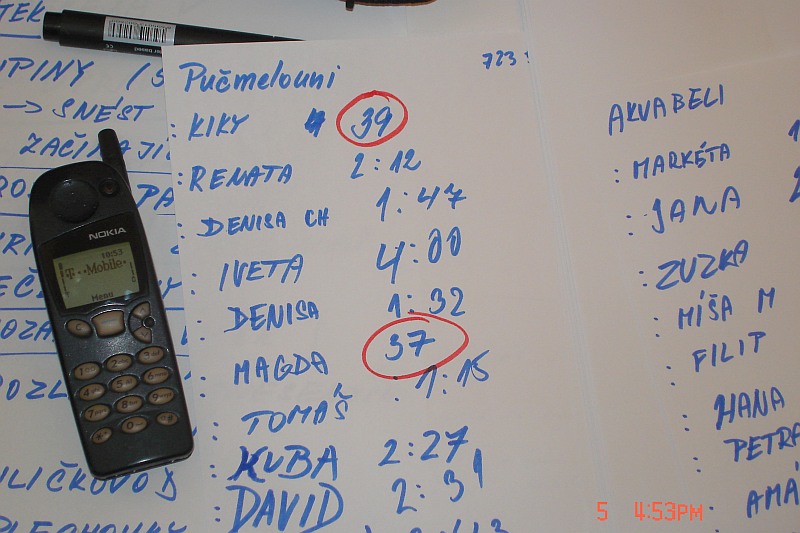 Pučmelouni
723
KIKY 39
RENATA 2:12
DENISA CH 1:47
IVETA 4:00
DENISA 1:32
MAGDA 37
TOMAŠ 1:15
KUBA 2:27
DAVID 2:31
AKVABELI
: MARKÉTA
: JANA
: ZUZKA
: MÍŠA M
: FILIP
: HANA
: PETRA
: AMÁ
TEK
UPINY
→ SNĚST
ZAČÍNAJÍ
PA
NOKIA
18:53
T-Mobile
Menu
5 4:53PM